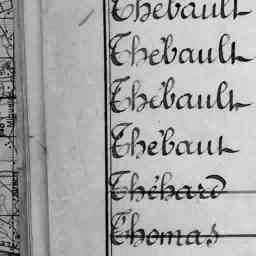 Thebault
Thébault
Thébault
Thébaut
Théhard
Thomas